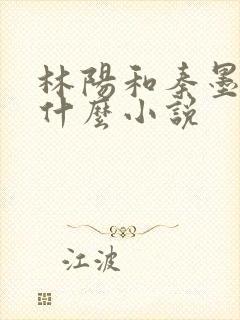 林陽和秦墨
什麼小說
江波